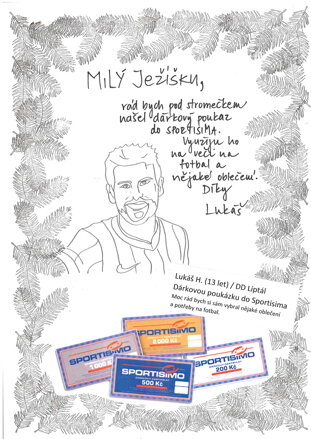 MILÝ JEŽÍŠKU,
rád bych pod stromečkem
našel dárkový poukaz
do SPORTISIMA.
Využiju ho
na věci na
fotbal a
nějaké oblečení.
Díky
Lukáš
Lukáš H. (13 let) / DD Liptál
Dárkovou poukázku do Sportisima
Moc rád bych si sám vybral nějaké oblečení
a potřeby na fotbal.
SPORTISIMO
2000 Kč
SPORTISIMO
1000 Kč
SPORTISIMO
200 Kč
SPORTISIMO
500 Kč